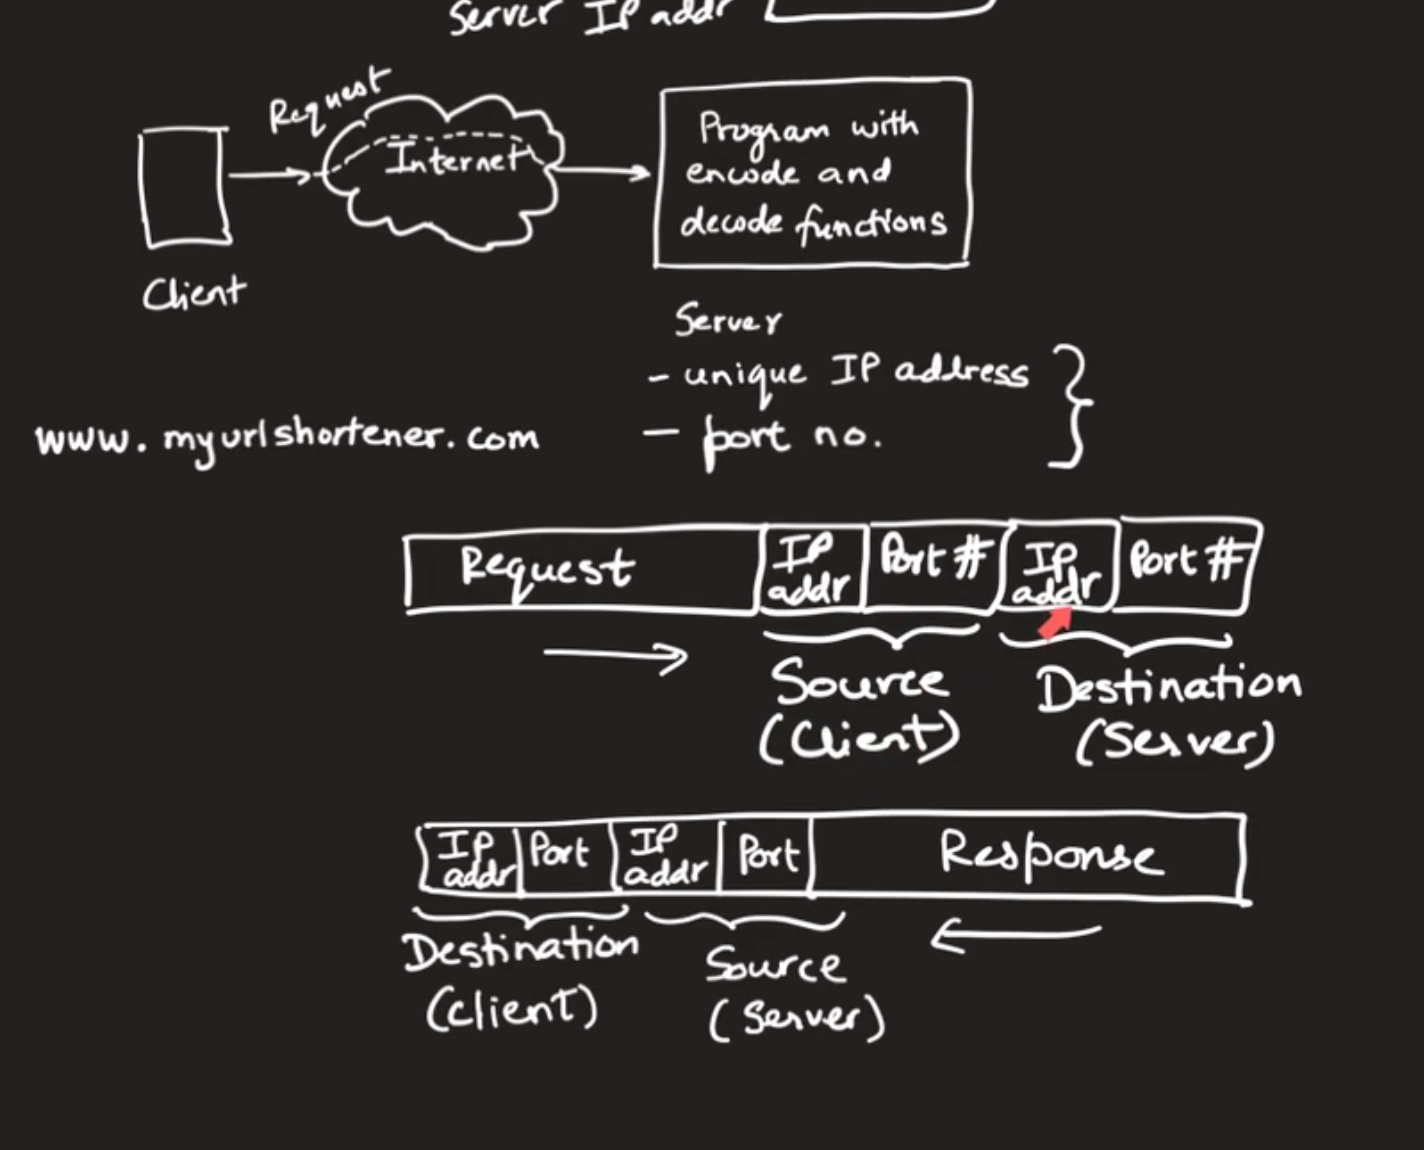 Server IP addr
Request
Internet
Program with
encode and
decode functions
Client
Server
- unique IP address
- port no.
www.myurlshortener.com
Request IP addr Port # IP addr Port #
Source Destination
(Client) (Server)
IP addr Port IP addr Port Response
Destination Source
(Client) (Server)